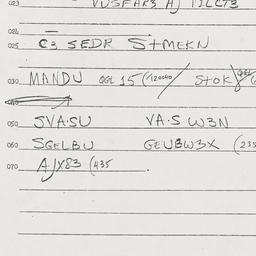 023 VUSFAR3 AJ TILCT3
024
025 C3 SEDR STMEKN
030 MANDU QGL 15 (120040 / STOK
050 SVA.SU VA.S W3N
060 SGELBU GEUBW3X (235
070 AJX83 (435 .